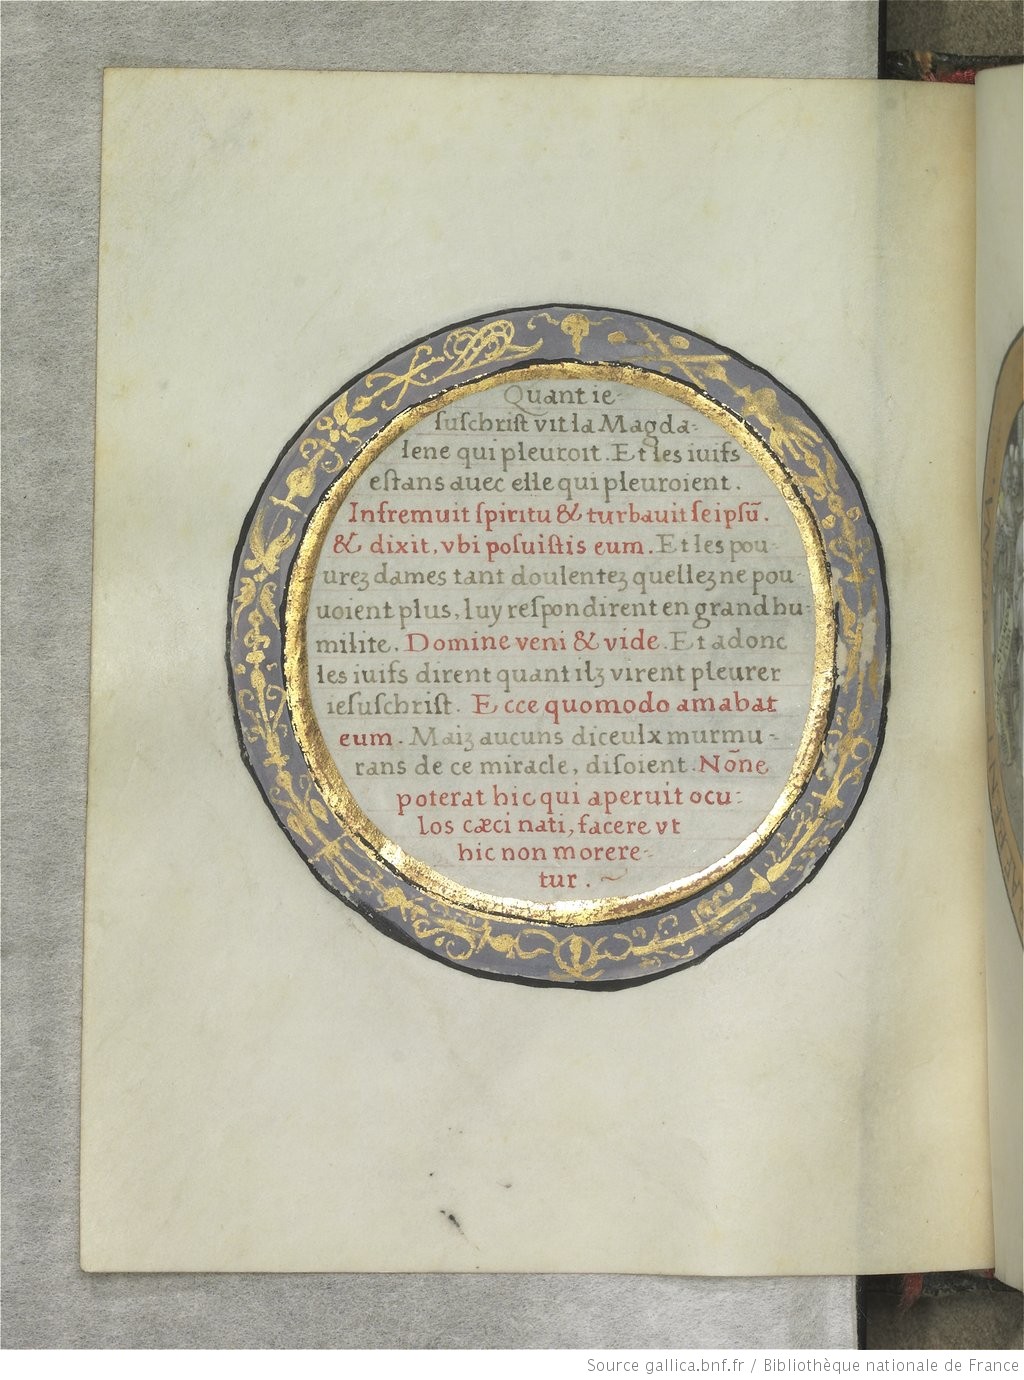 Quant ie-
ſuſchriſt vit la Magda-
lene qui pleuroit. Et les iuifs
eſtans auec elle qui pleuroient.
Infremuit ſpiritu & turbauit ſeipſū.
& dixit, vbi poſuiſtis eum. Et les pou-
ureȝ dames tant doulenteȝ quelleȝ ne pou-
uoient plus, luy reſpondirent en grand hu-
milite. Domine veni & vide. Et adonc
les iuifs dirent quant ilȝ virent pleurer
ieſuſchriſt. Ecce quomodo amabat
eum. Maiȝ aucuns diceulx murmu-
rans de ce miracle, diſoient. Nōne
poterat hic qui aperuit ocu-
los cæci nati, facere vt
hic non morere-
tur. ~
Source gallica.bnf.fr / Bibliothèque nationale de France